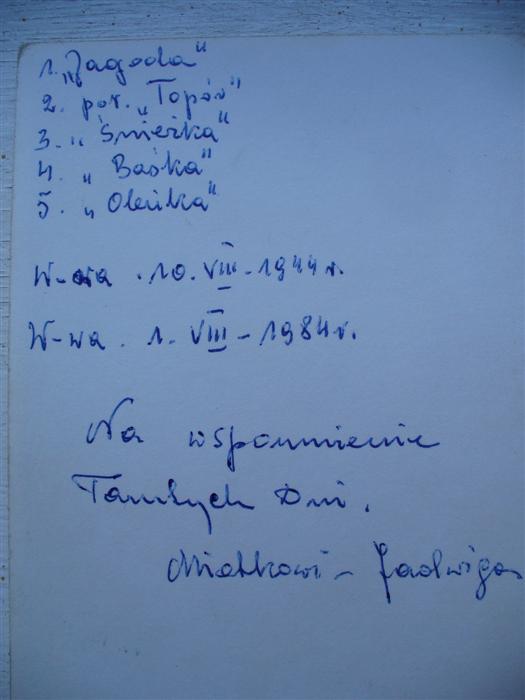 1. „Jagoda"
2. por. „Topór"
3. „Śnieżka"
4. „Baśka"
5. „Oleńka"
W-wa . 10. VIII - 1944 r.
W-wa . 1. VIII - 1984 r.
Na wspomnienie
Tamtych Dni.
Mietkowi - Jadwiga